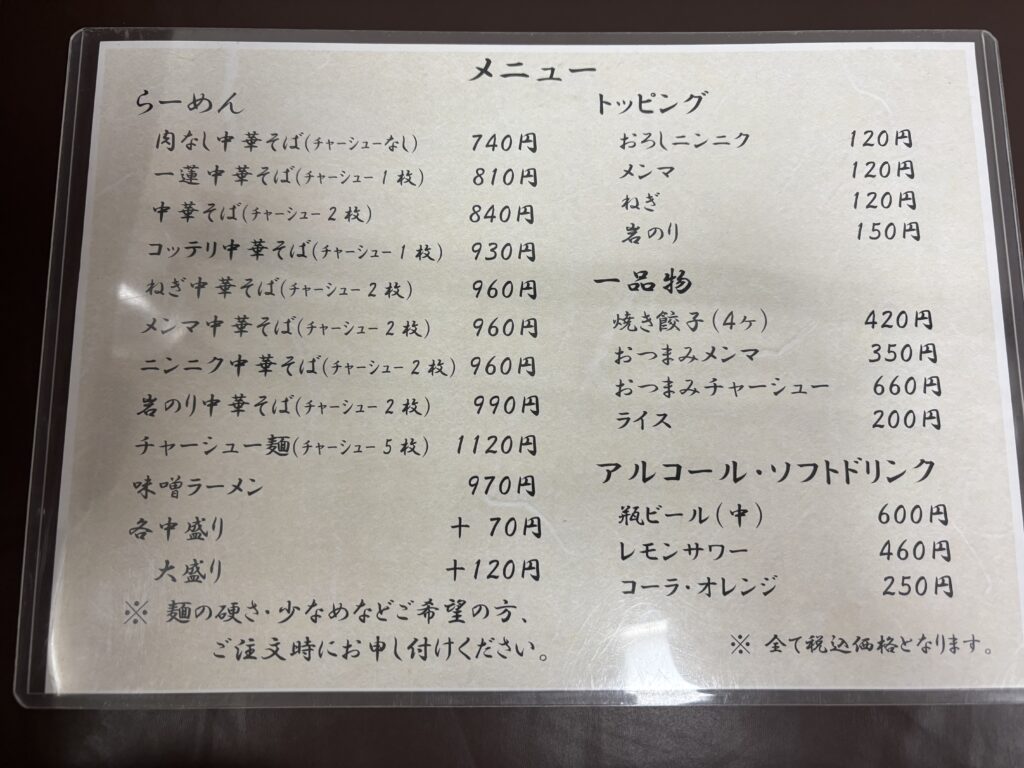 メニュー
らーめん
肉なし中華そば(チャーシューなし) 740円
一蓮中華そば(チャーシュー1枚) 810円
中華そば(チャーシュー2枚) 840円
コッテリ中華そば(チャーシュー1枚) 930円
ねぎ中華そば(チャーシュー2枚) 960円
メンマ中華そば(チャーシュー2枚) 960円
ニンニク中華そば(チャーシュー2枚) 960円
岩のり中華そば(チャーシュー2枚) 990円
チャーシュー麺(チャーシュー5枚) 1120円
味噌ラーメン 970円
各中盛り +70円
大盛り +120円
※ 麺の硬さ・少なめなどご希望の方、
ご注文時にお申し付けください。
トッピング
おろしニンニク 120円
メンマ 120円
ねぎ 120円
岩のり 150円
一品物
焼き餃子(4ヶ) 420円
おつまみメンマ 350円
おつまみチャーシュー 660円
ライス 200円
アルコール・ソフトドリンク
瓶ビール(中) 600円
レモンサワー 460円
コーラ・オレンジ 250円
※ 全て税込価格となります。